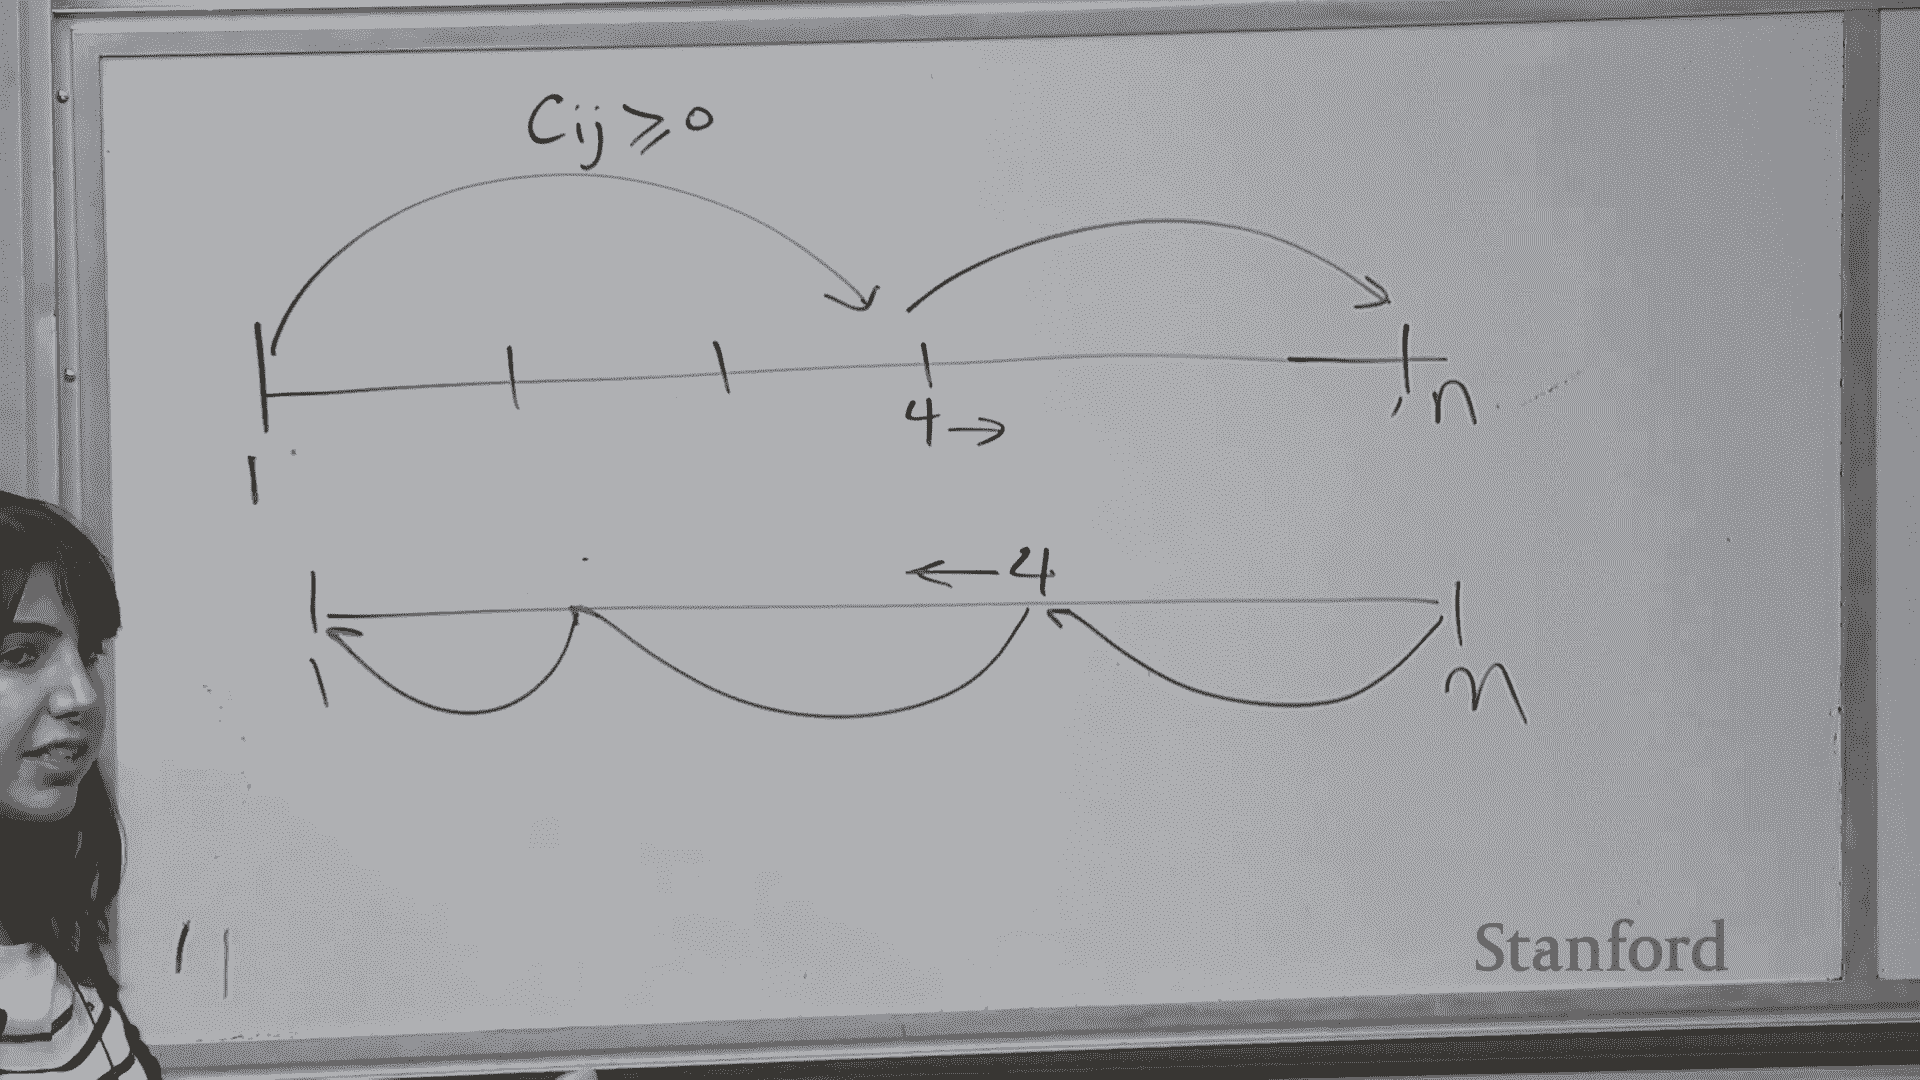 Cij ⩾ 0
4 → n
1
← 4
1 n
Stanford